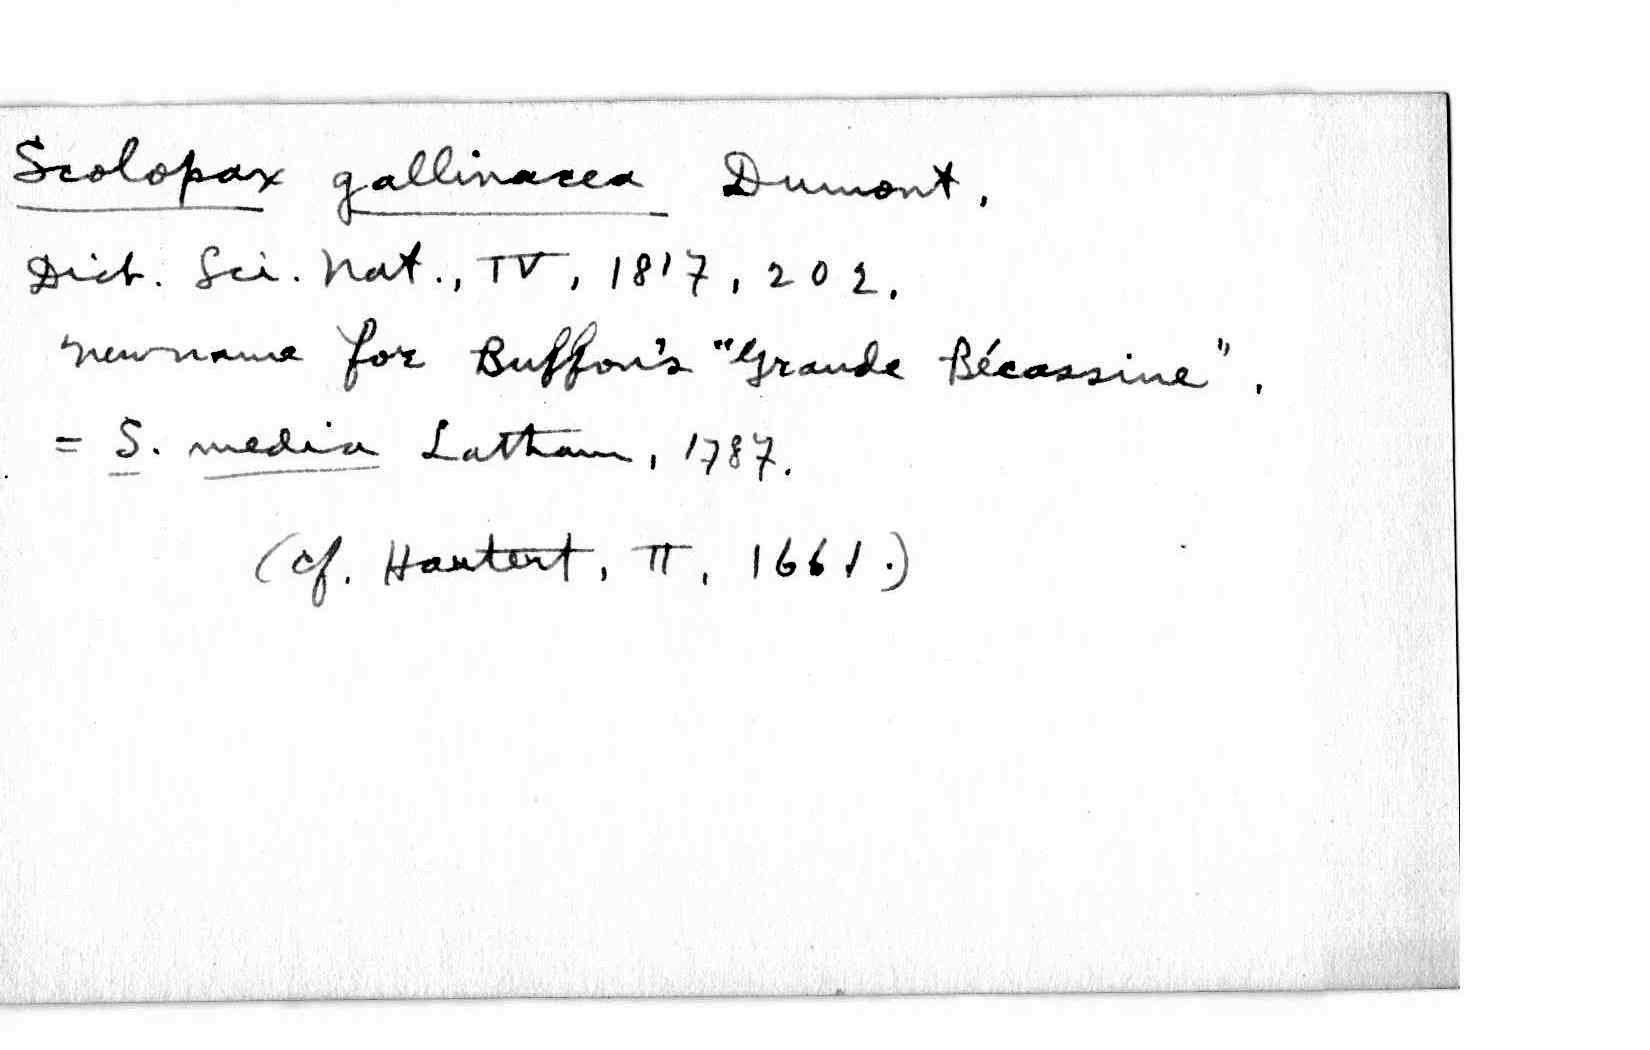 Scolopax gallinacea Dumont.
Dict. Sci. Nat., IV, 1817, 202.
new name for Buffon's "Grande Bécassine".
= S. media Latham, 1787.
(cf. Hartert, II, 1661.)